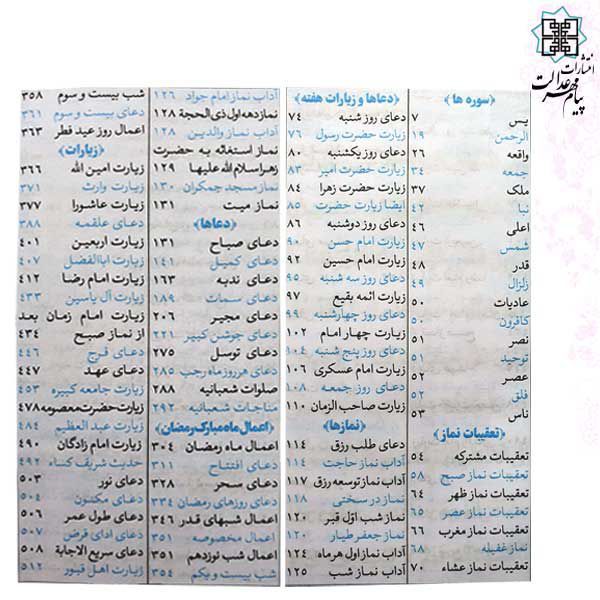 انتشارات
پیام مهر عدالت
﴿سوره ها﴾
یس ۷
الرحمن ۱۹
واقعه ۲۶
جمعه ۳۴
ملک ۳۷
نبا ۴۲
اعلی ۴۶
شمس ۴۷
قدر ۴۸
زلزال ۴۹
عادیات ۵۰
کافرون ۵۰
نصر ۵۱
توحید ۵۱
عصر ۵۲
فلق ۵۲
ناس ۵۳
﴿تعقیبات نماز﴾
تعقیبات مشترکه ۵۴
تعقیبات نماز صبح ۵۸
تعقیبات نماز ظهر ۶۴
تعقیبات نماز عصر ۶۵
تعقیبات نماز مغرب ۶۶
نماز غفیله ۶۸
تعقیبات نماز عشاء ۷۰
﴿دعاها و زیارات هفته﴾
دعای روز شنبه ۷۴
زیارت حضرت رسول ۷۶
دعای روز یکشنبه ۸۰
زیارت حضرت امیر ۸۳
زیارت حضرت زهرا ۸۴
ایضا زیارت حضرت ۸۵
دعای روز دوشنبه ۸۶
زیارت امام حسن ۹۰
زیارت امام حسین ۹۲
دعای روز سه شنبه ۹۵
زیارت ائمه بقیع ۹۷
دعای روز چهارشنبه ۹۹
زیارت چهار امام ۱۰۲
دعای روز پنج شنبه ۱۰۴
زیارت امام عسکری ۱۰۶
دعای روز جمعه ۱۰۸
زیارت صاحب الزمان ۱۱۰
﴿نمازها﴾
دعای طلب رزق ۱۱۴
آداب نماز حاجت ۱۱۴
آداب نماز توسعه رزق ۱۱۷
نماز در سختی ۱۱۸
نماز شب اوّل قبر ۱۲۰
نماز جعفر طیار ۱۲۰
آداب نماز اول هرماه ۱۲۴
آداب نماز شب ۱۲۵
آداب نماز امام جواد ۱۲۶
نماز دهه اول ذی الحجة ۱۲۸
آداب نماز والدین ۱۲۸
نماز استغاثه به حضرت
زهرا سلام الله علیها ۱۲۹
نماز مسجد جمکران ۱۳۰
نماز میت ۱۳۱
﴿دعاها﴾
دعای صباح ۱۳۱
دعای کمیل ۱۴۱
دعای ندبه ۱۶۳
دعای سمات ۱۸۹
دعای مجیر ۲۰۶
دعای جوشن کبیر ۲۲۱
دعای توسل ۲۷۵
دعای هر روز ماه رجب ۲۸۵
صلوات شعبانیه ۲۸۸
مناجات شعبانیه ۲۹۲
﴿اعمال ماه مبارک رمضان﴾
اعمال ماه رمضان ۳۰۴
دعای افتتاح ۳۱۱
دعای سحر ۳۲۸
دعای روزهای رمضان ۳۳۴
اعمال شبهای قدر ۳۴۶
اعمال مخصوصه ۳۵۱
اعمال شب نوزدهم ۳۵۱
شب بیست و یکم ۳۵۴
شب بیست و سوم ۳۵۸
دعای بیست و سوم ۳۶۱
اعمال روز عید فطر ۳۶۳
﴿زیارات﴾
زیارت امین الله ۳۶۶
زیارت وارث ۳۷۱
زیارت عاشورا ۳۷۷
دعای علقمه ۳۸۸
زیارت اربعین ۴۰۱
زیارت اباالفضل ۴۰۷
زیارت امام رضا ۴۱۲
زیارت آل یاسین ۴۳۳
زیارت امام زمان بعد
از نماز صبح ۴۳۴
دعای فرج ۴۴۶
دعای عهد ۴۴۷
زیارت جامعه کبیره ۴۵۳
زیارت حضرت معصومه ۴۷۸
زیارت عبد العظیم ۴۸۴
زیارت امام زادگان ۴۹۰
حدیث شریف کساء ۴۹۲
دعای نور ۵۰۳
دعای مکنون ۵۰۴
دعای طول عمر ۵۰۶
دعای ادای قرض ۵۰۷
دعای سریع الاجابة ۵۰۸
زیارت اهل قبور ۵۱۲